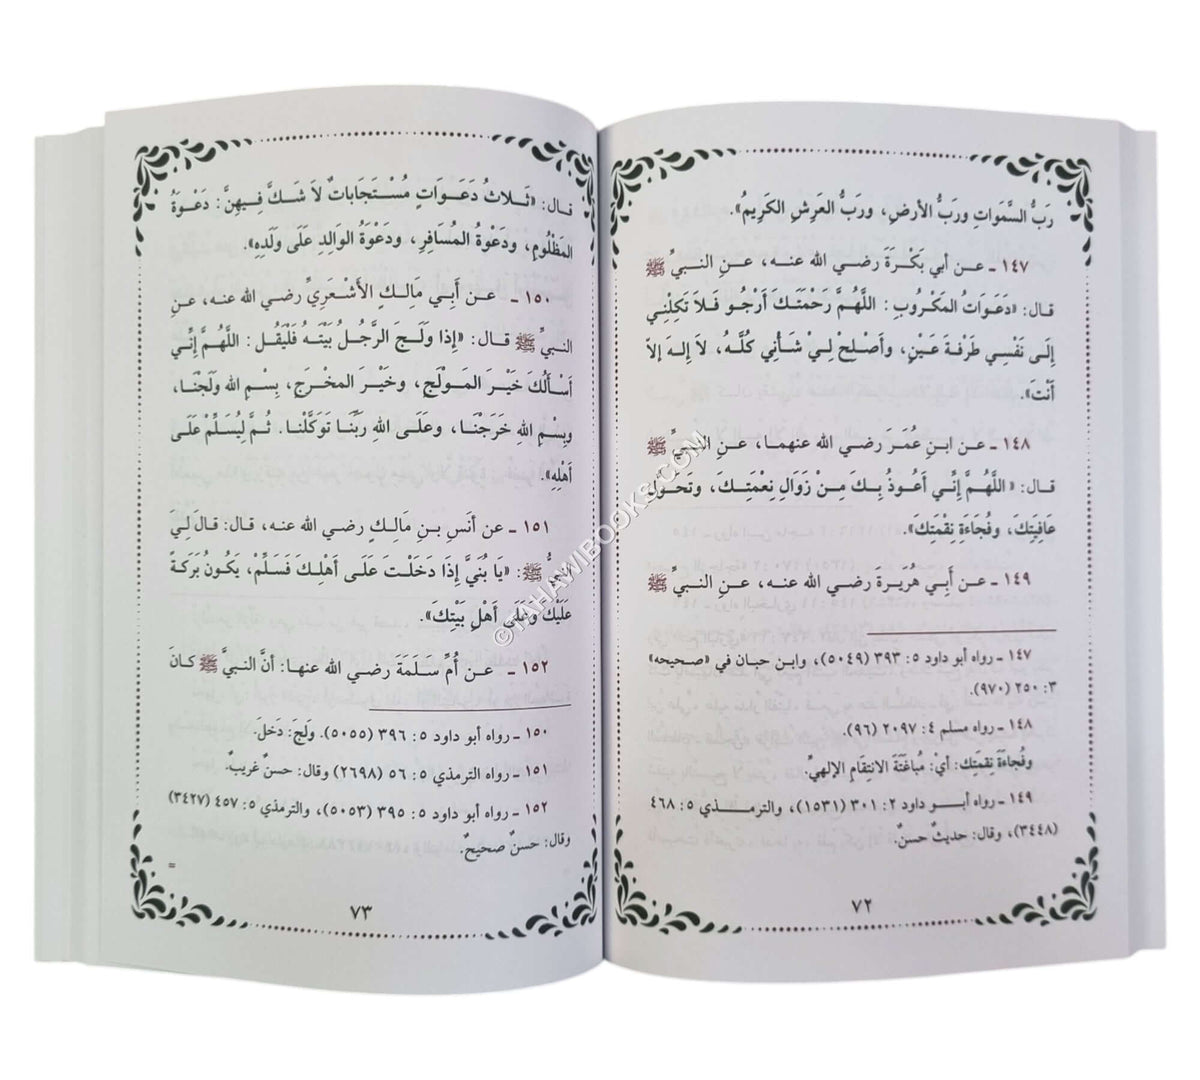 رَبُّ السَّمَوَاتِ ورَبُّ الأَرضِ، ورَبُّ العَرشِ الكَرِيمُ».
١٤٧ ـ عـن أبي بَكْرَةَ رَضـي الله عنـه، عَـنِ النبـيِّ ﷺ
قالَ: «دَعَوَاتُ المَكْرُوبِ: اللَّهُمَّ رَحْمَتَكَ أَرْجُو فَلاَ تَكِلْنِي
إِلَى نَفْسِي طَرْفَةَ عَيْنٍ، وأَصْلِحْ لِيْ شَأْنِي كُلَّهُ، لاَ إِلهَ إِلاَّ
أَنْتَ».
١٤٨ ـ عـن ابـنِ عُمَـرَ رَضـي الله عنهمـا، عَـنِ النبـيِّ ﷺ
قـال: «اللَّهُمَّ إِنِّي أَعُوذُ بِـكَ مِـنْ زَوَالِ نِعْمَتِـكَ، وتَحَوُّلِ
عَافِيَتِكَ، وفُجَاءَةِ نِقْمَتِكَ».
١٤٩ ـ عـن أَبِي هُرَيـرَةَ رَضـي الله عنـه، عَـنِ النبـيِّ ﷺ
١٤٧ ـ رواه أبو داود ٥: ٣٩٣ (٥٠٤٩)، وابن حبان في «صحيحه»
٣: ٢٥٠ (٩٧٠).
١٤٨ ـ رواه مسلم ٤: ٢٠٩٧ (٩٦).
وفُجاءَة نِقمَتِك: أي: مباغَتَة الانتِقام الإلهيِّ.
١٤٩ ـ رواه أبـو داود ٢: ٣٠١ (١٥٣١)، والترمـذي ٥: ٤٦٨
(٣٤٤٨)، وقال: حديثٌ حسنٌ.
٧٢
قـال: «ثَـلاثُ دَعَـوَاتٍ مُسْـتَجَابَاتٌ لاَ شَـكَّ فِـيهِنَّ: دَعْـوَةُ
المَظْلُومِ، ودَعْوَةُ المُسَافِرِ، ودَعْوَةُ الوَالِدِ عَلَى وَلَدِهِ».
١٥٠ ـ عـن أَبِي مَالِـكٍ الأَشْعَرِيِّ رَضـي الله عنـه، عَـنِ
النبيِّ ﷺ قالَ: «إِذَا وَلَـجَ الرَّجُلُ بَيْتَـهُ فَلْيَقُـل: اللَّهُـمَّ إِنِّي
أَسْأَلُكَ خَيْـرَ المَـوْلَجِ، وخَيْـرَ المَخْـرَجِ، بِسْـمِ الله وَلَجْنَـا،
وبِسْمِ الله خَرَجْنَـا، وعَلَى اللهِ رَبِّنَا تَوَكَّلْنا. ثُـمَّ لْيُسَـلِّمْ عَلَى
أَهْلِهِ».
١٥١ ـ عن أَنَسِ بـنِ مَالِـكٍ رَضـي الله عنه، قال: قـالَ لـي
النبيُّ ﷺ: «يَا بُنَيَّ إِذَا دَخَلْـتَ عَلَى أَهْلِـكَ فَسَـلِّمْ، يَكُـونُ بَرَكَـةً
عَلَيْكَ وعَلَى أَهْلِ بَيْتِكَ».
١٥٢ ـ عَـن أُمِّ سَـلَمَةَ رَضي الله عنهـا: أَنَّ النبـيَّ ﷺ كانَ
١٥٠ ـ رواه أبو داود ٥: ٣٩٦ (٥٠٥٥). وَلَجَ: دَخَلَ.
١٥١ ـ رواه الترمذي ٥: ٥٦ (٢٦٩٨) وقال: حسنٌ غريبٌ.
١٥٢ ـ رواه أبو داود ٥: ٣٩٥ (٥٠٥٣)، والترمذي ٥: ٤٥٧ (٣٤٢٧)
وقال: حسنٌ صحيحٌ.
=
٧٣
©TAHAWIBOOKS.COM